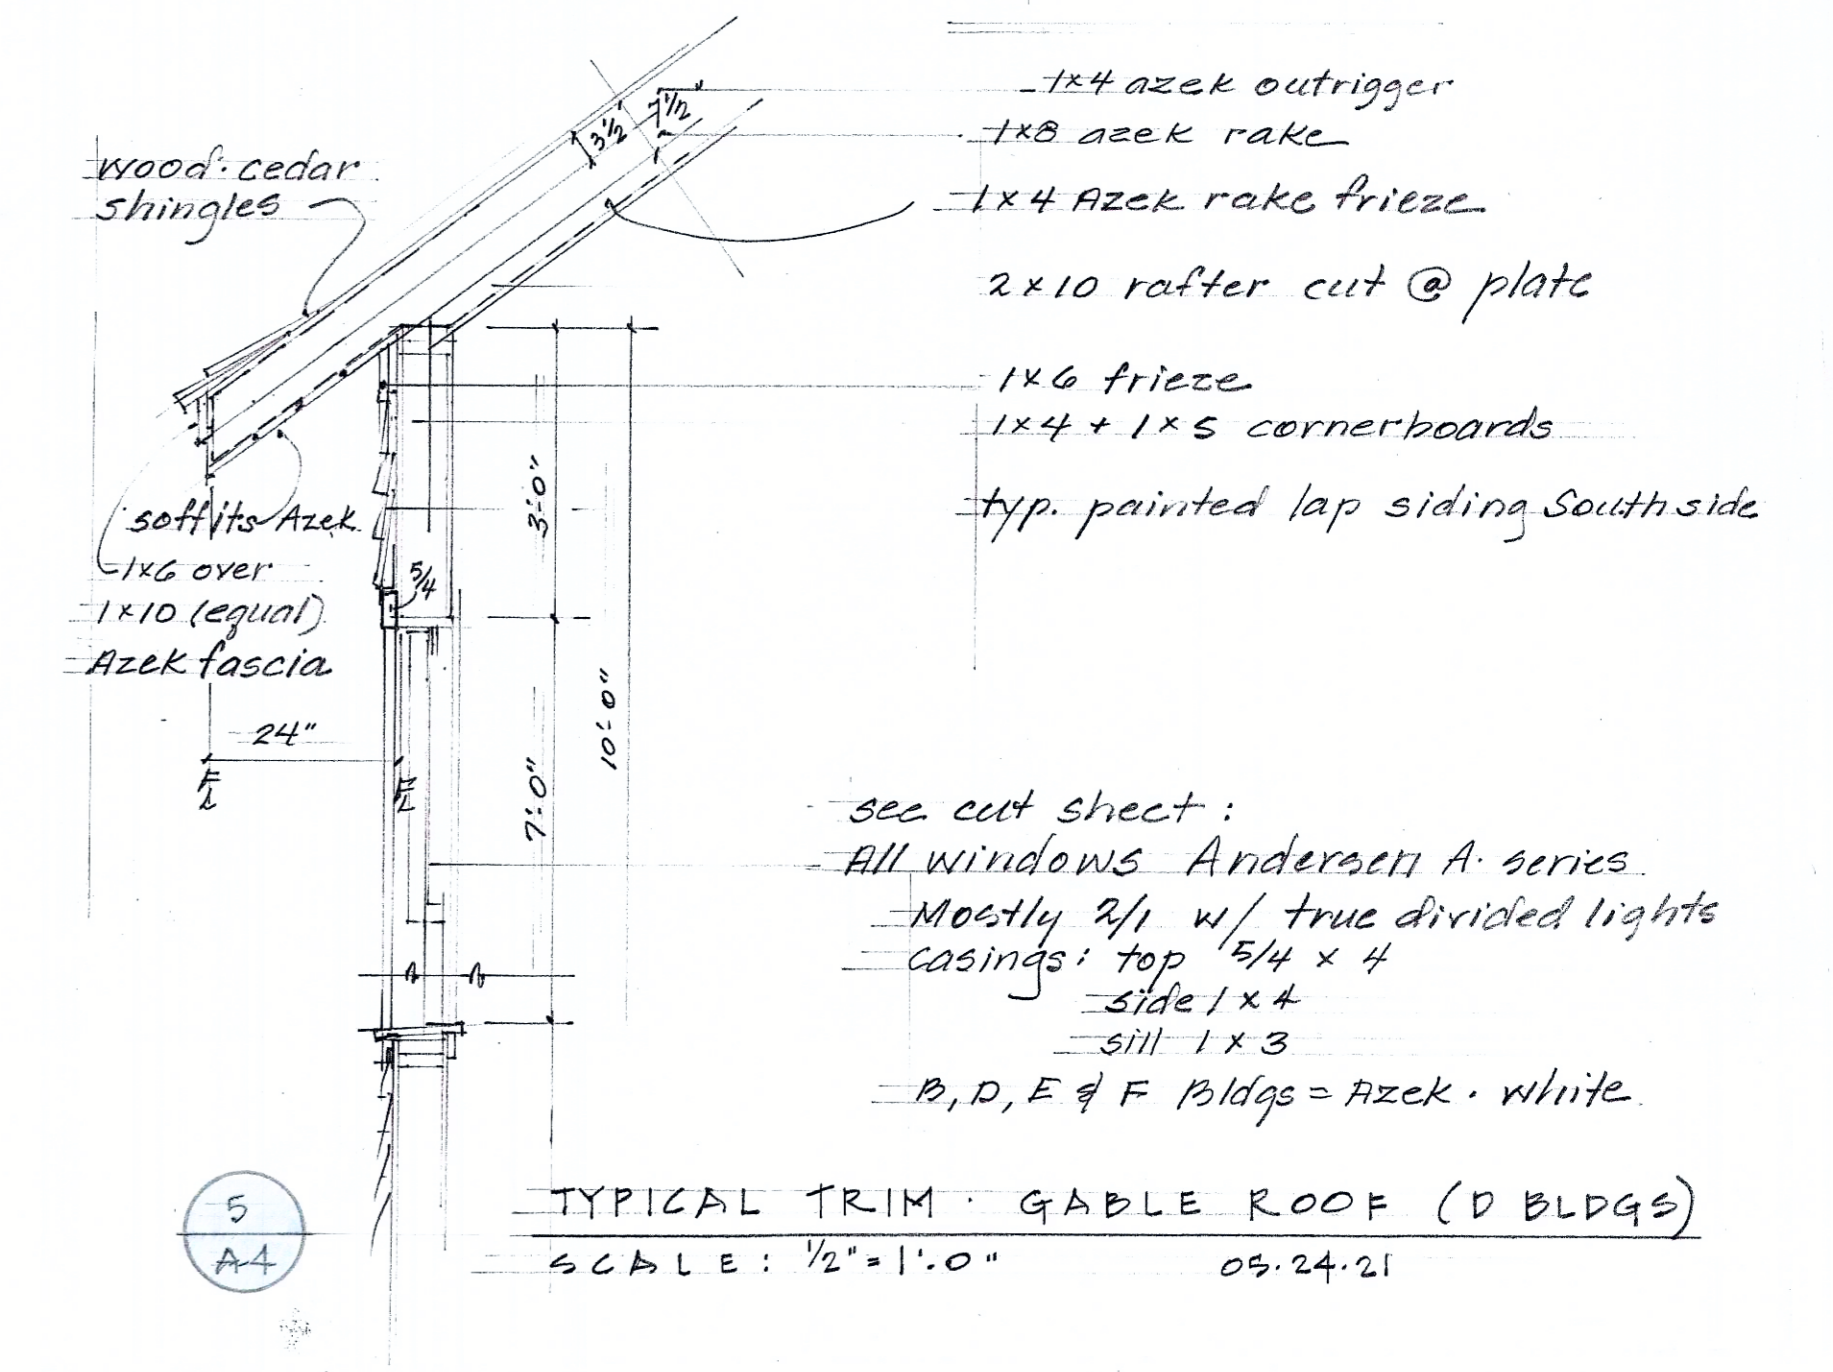 1x4 azek outrigger
7 1/2"
3 1/2
1x8 azek rake
wood · cedar
shingles
1x4 Azek rake frieze
2x10 rafter cut @ plate
1x6 frieze
1x4 + 1x5 cornerboards
3'-0"
typ. painted lap siding South side
soffits Azek
5/4
1x6 over
1x10 (equal)
Azek fascia
10'-0"
24"
FL
FL
7'-0"
see cut sheet :
All windows Andersen A· series
Mostly 2/1 w/ true divided lights
casings: top 5/4 x 4
side 1 x 4
sill 1 x 3
B, D, E & F Bldgs = Azek · white
5
A4
TYPICAL TRIM · GABLE ROOF (D BLDGS)
SCALE: 1/2" = 1'.0"
05.24.21